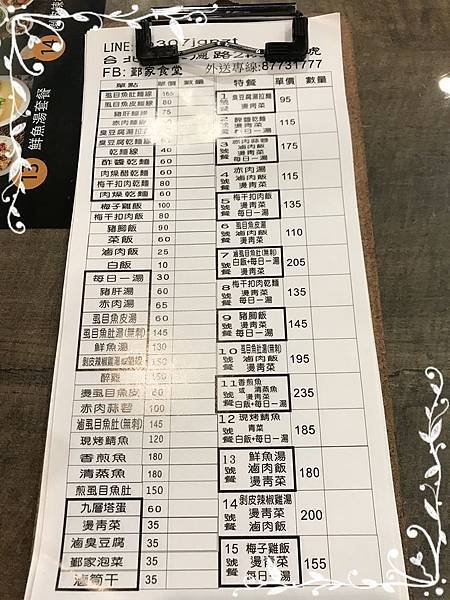 LINE:
FB: 鄞家食堂 外送專線:87731777
單點 單價 數量
虱目魚肚麵線 165
虱目魚皮麵線 80
豬肝麵線 75
赤肉麵線
臭豆腐湯拉麵
臭豆腐乾麵
乾麵線 40
酢醬乾麵 60
肉燥醋乾麵 60
梅干扣肉乾麵 80
肉燥乾麵 60
梅子雞飯 100
梅干扣肉飯 80
豬腳飯 90
菜飯 60
滷肉飯 25
白飯 10
每日一湯 30
豬肝湯 60
赤肉湯 65
虱目魚皮湯 60
虱目魚肚湯(無刺) 145
鮮魚湯 130
剝皮辣椒雞湯 150
醉雞 150
燙虱目魚皮 60
赤肉蒜蓉 100
滷虱目魚肚(無刺) 145
現烤鯖魚 120
香煎魚 150
清蒸魚 150
煎虱目魚肚 150
九層塔蛋 60
燙青菜 35
滷臭豆腐 35
鄞家泡菜 35
滷筍干 35
特餐 單價 數量
1號餐 臭豆腐湯拉麵 燙青菜 95
酢醬乾麵 燙青菜 每日一湯 115
3號餐 赤肉蒜蓉 滷肉飯 燙青菜 175
4號餐 赤肉湯 滷肉飯 燙青菜 115
5號餐 梅干扣肉飯 燙青菜 每日一湯 135
6號餐 虱目魚皮湯 滷肉飯 燙青菜 110
7號餐 滷虱目魚肚(無刺) 白飯+每日一湯 燙青菜 205
8號餐 梅干扣肉乾麵 燙青菜 每日一湯 135
9號餐 豬腳飯 燙青菜 每日一湯 145
10號餐 虱目魚肚湯(無刺) 滷肉飯 燙青菜 195
11號餐 香煎魚 或 清蒸魚 燙青菜 白飯+每日一湯 235
12號餐 現烤鯖魚 青菜 白飯+每日一湯 185
13號餐 鮮魚湯 滷肉飯 燙青菜 180
14號餐 剝皮辣椒雞湯 燙青菜 滷肉飯 200
15號餐 梅子雞飯 燙青菜 每日一湯 155
14
13 鮮魚湯套餐